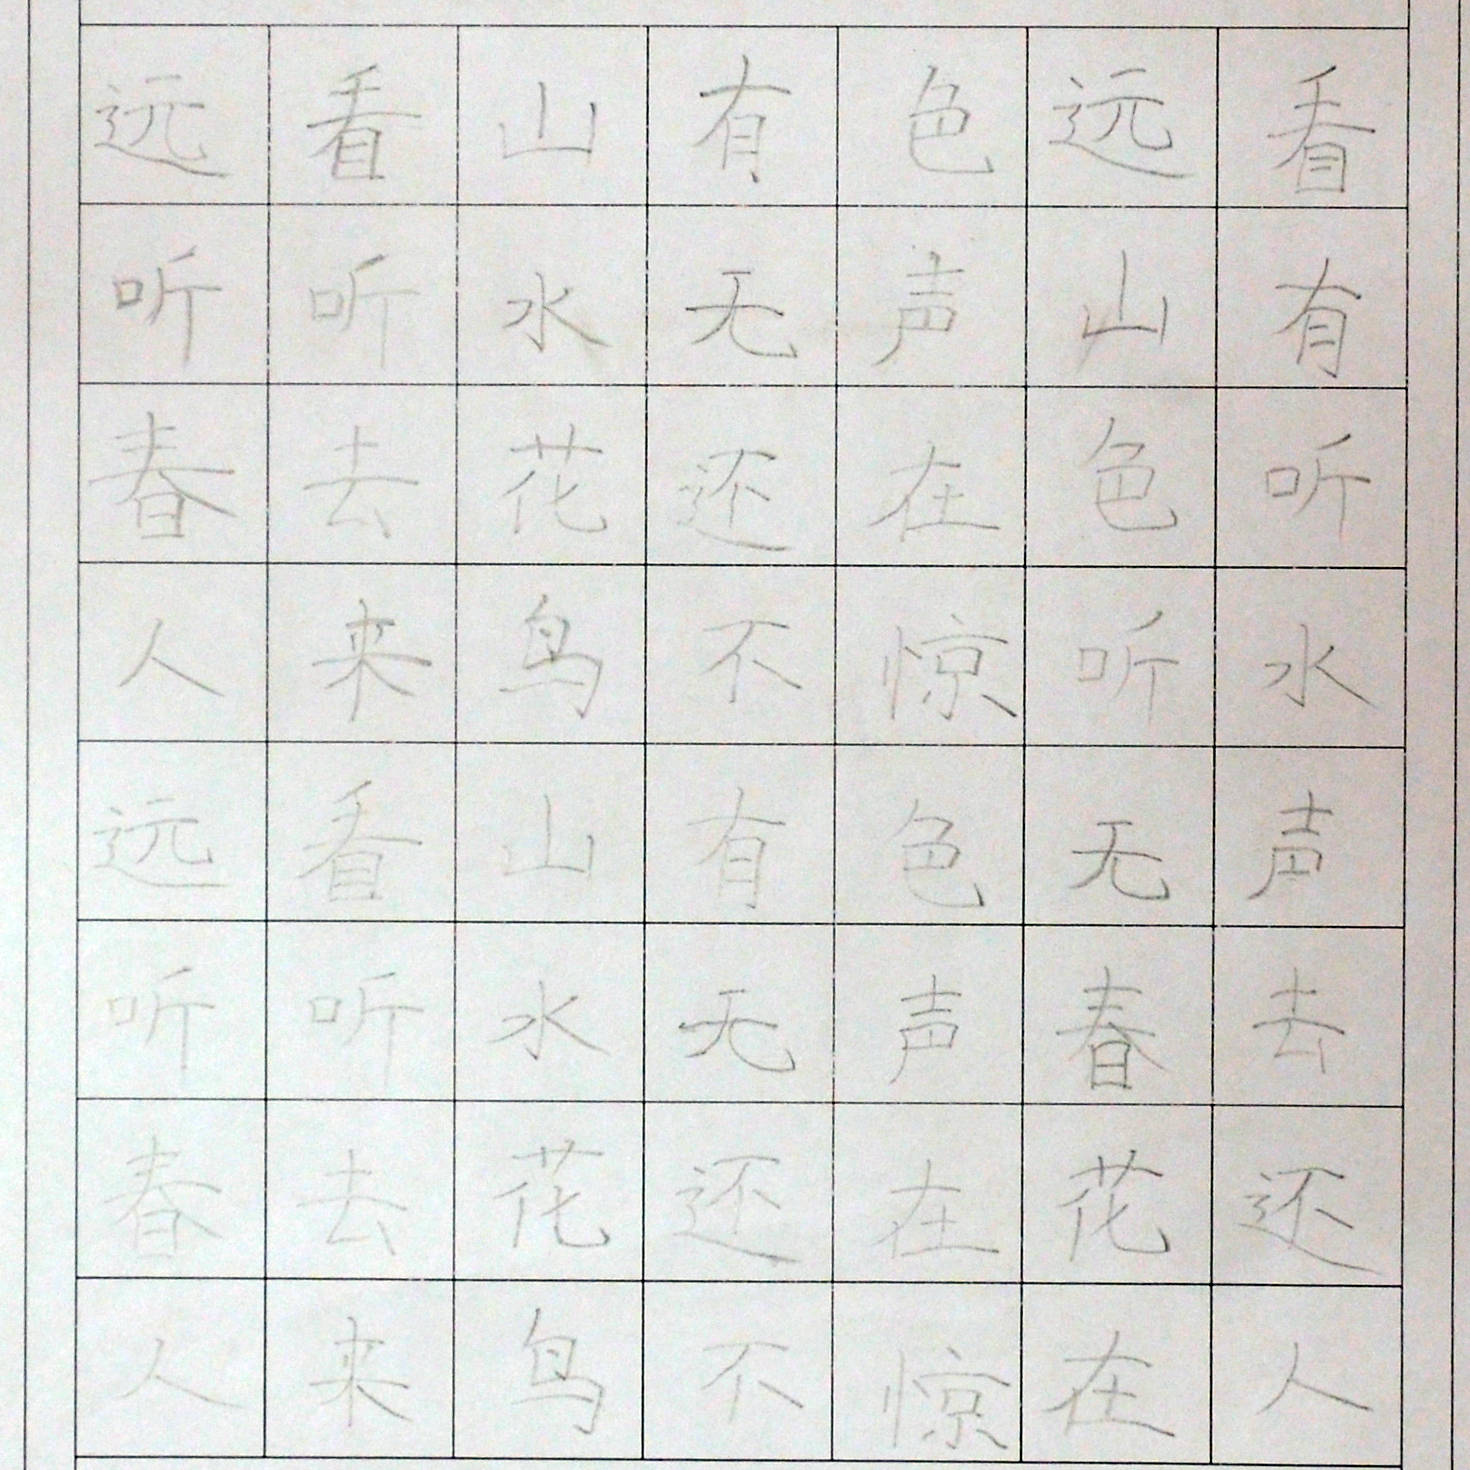 远看山有色远看
听听水无声山有
春去花还在色听
人来鸟不惊听水
远看山有色无声
听听水无声春去
春去花还在花还
人来鸟不惊在人